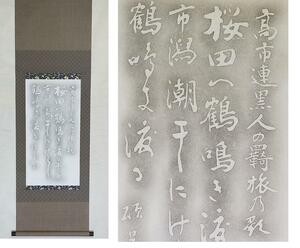 高市連黒人の羈旅乃歌
桜田へ鶴鳴き渡
市潟潮干にけ
鶴鳴き渡る